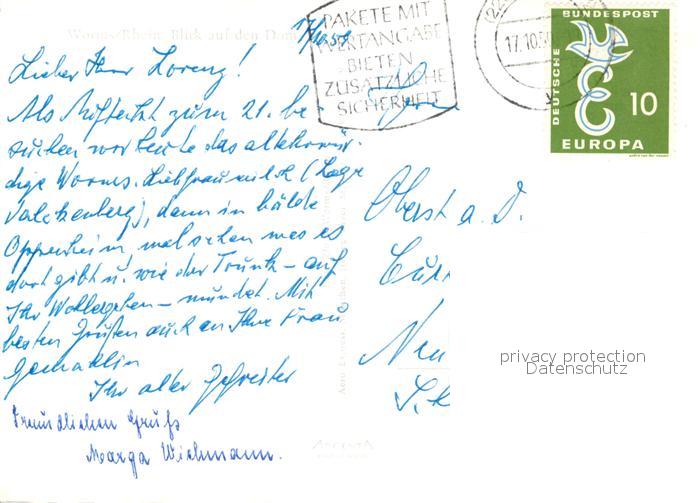 Worms/Rhein Blick auf den Dom
17/10.59
Lieber Herr Lorenz!
Als Auftakt zum 21. be-
suchen wir heute das altehrwür-
dige Worms. Liebfraumilch (Lage
Valckenberg), dann in bälde
Oppenheim, mal sehen was es
dort gibt u. wie der Trunk – auf
Ihr Wohlergehen – mundet. Mit
besten Grüßen auch an Ihre Frau
Gemahlin
Ihr alter Gefreiter
Freundlichen Gruß
Marga Wichmann.
PAKETE MIT
WERTANGABE
BIETEN
ZUSÄTZLICHE
SICHERHEIT
17.10.59
DEUTSCHE BUNDESPOST
10
EUROPA
Herrn
Oberst a. D.
Neu
privacy protection
Datenschutz
ARGENTA